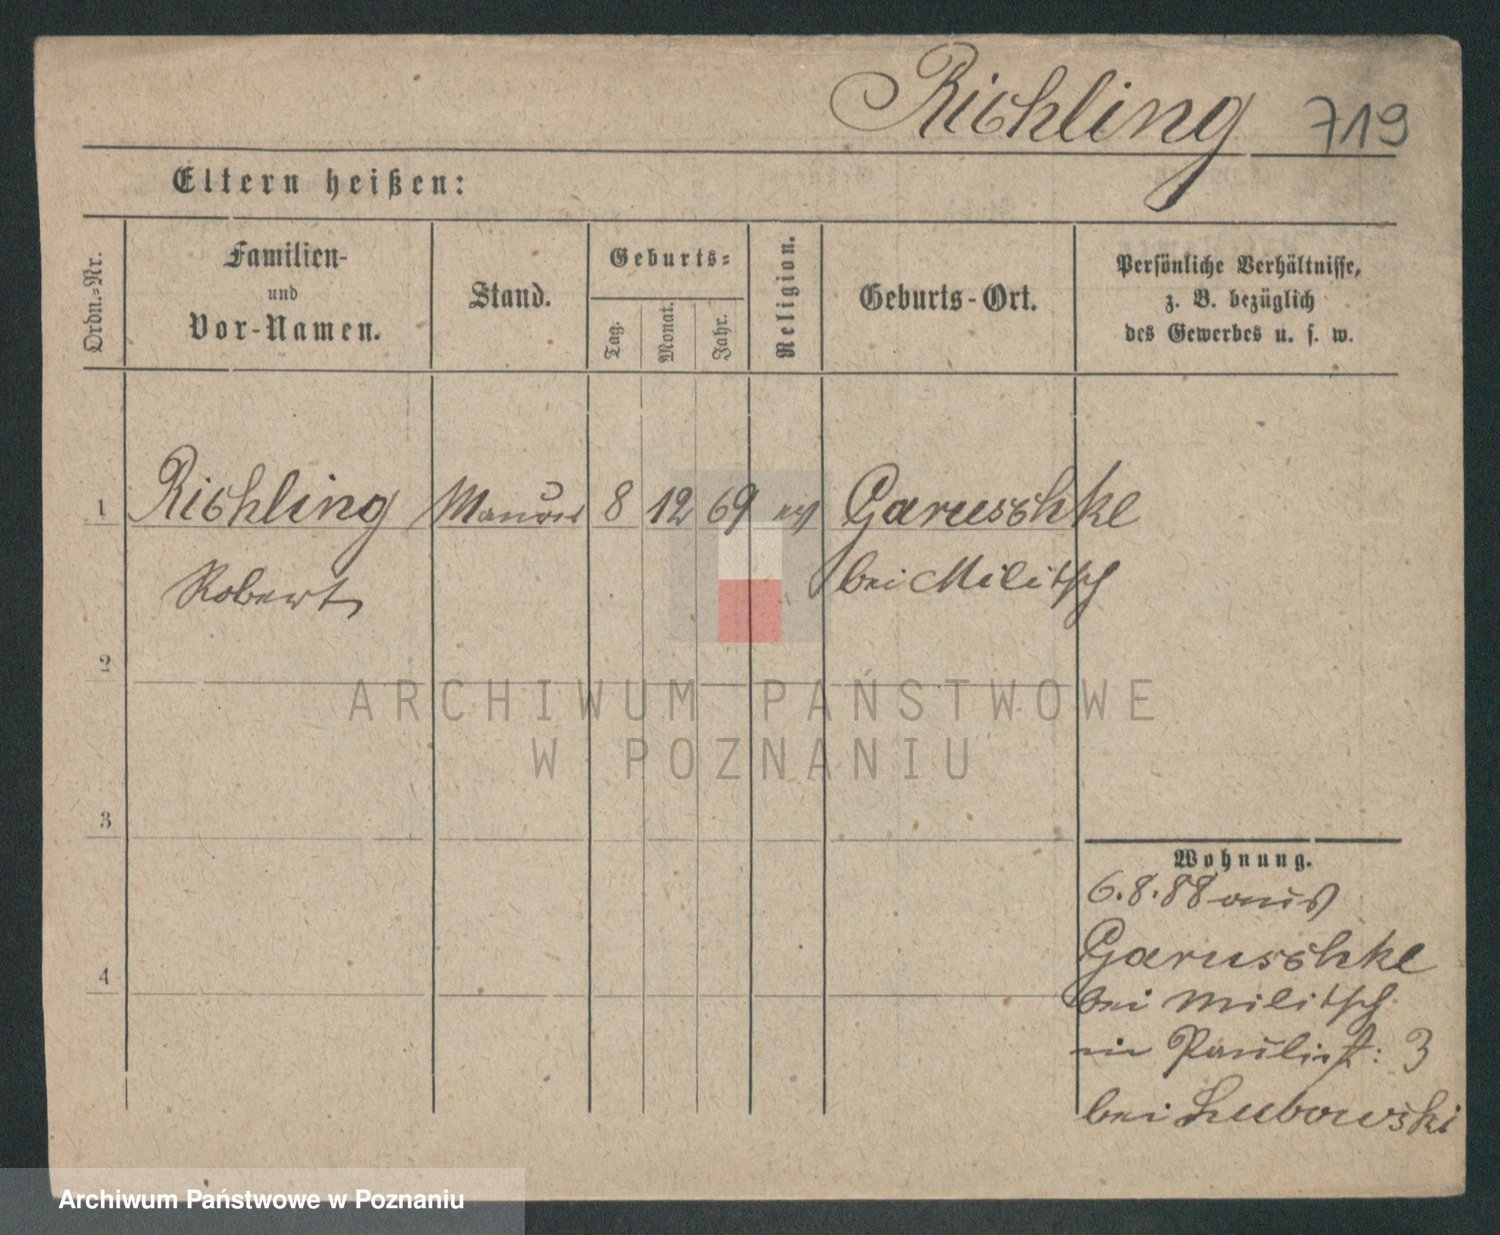 Richling 719
Eltern heißen:
Ordn.=Nr.
Familien-
und
Vor-Namen.
Stand.
Geburts=
Tag.
Monat.
Jahr.
Religion.
Geburts-Ort.
Persönliche Verhältnisse,
z. B. bezüglich
des Gewerbes u. s. w.
1 Richling Maurer 8 12 69 ev Garuschke
Robert bei Militsch
2
3
4
Wohnung.
6.8.88 aus
Garuschke
bei Militsch
in Paulist: 3
bei Lubowski
ARCHIWUM PAŃSTWOWE
W POZNANIU
Archiwum Państwowe w Poznaniu